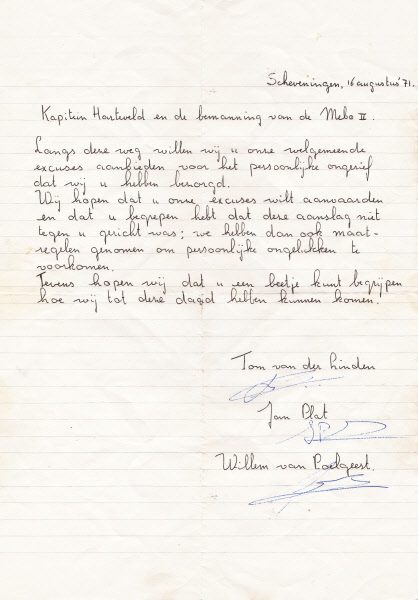 Scheveningen, 16 augustus '71.
Kapitein Harteveld en de bemanning van de Mebo II.
Langs deze weg willen wij u onze welgemeende
excuses aanbieden voor het persoonlijke ongerief
dat wij u hebben bezorgd.
Wij hopen dat u onze excuses wilt aanvaarden
en dat u begrepen hebt dat deze aanslag niet
tegen u gericht was; we hebben dan ook maat-
regelen genomen om persoonlijke ongelukken te
voorkomen.
Tevens hopen wij dat u een beetje kunt begrijpen
hoe wij tot deze daad hebben kunnen komen.
Tom van der Linden
Jan Plat
Willem van Poelgeest.